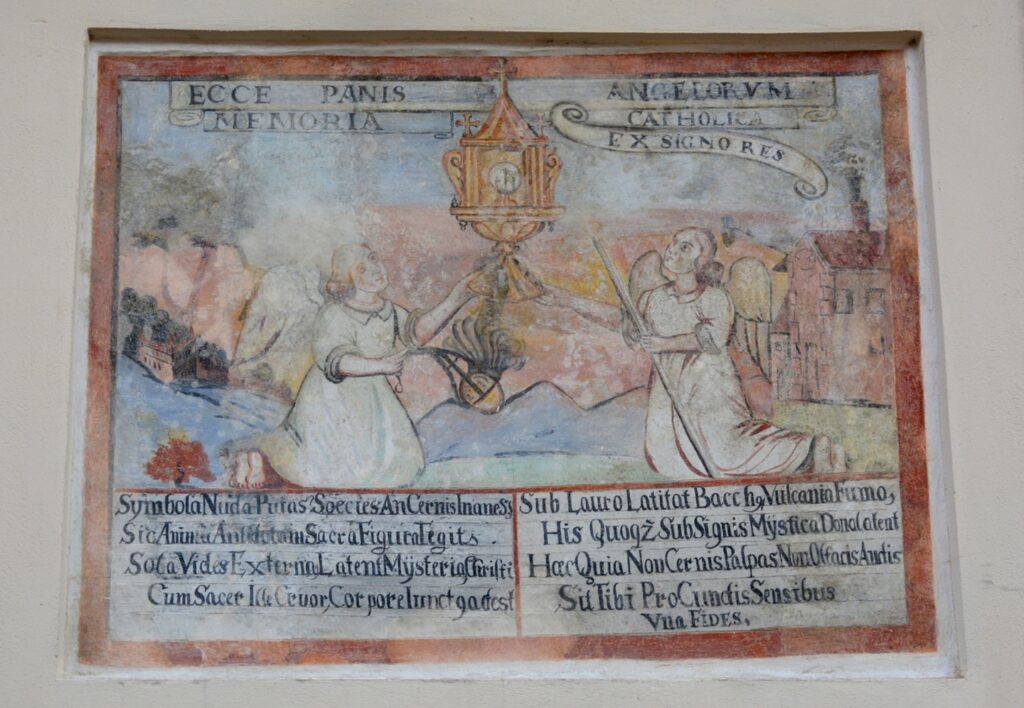 ECCE PANIS ANGELORVM
MEMORIA CATHOLICA
EX SIGNO RES
Symbola Nuda Putas? Species An Cernis Inanes?
Sic Animū Antidotam Sacra Figura Tegit.
Sola Vides Externa, Latent Mÿsteria Christi
Cum Sacer Ille Cruor, Corpore Iunct9 adest
Sub Lauro Latitat Bacch9, Vulcania Fumo,
His Quoqž Sub Signis Mÿstica Dona latent
Hæc Quia Non Cernis Palpas Non Olfacis Audis
Sit Tibi Pro Cunctis Sensibus
Vna FIDES.